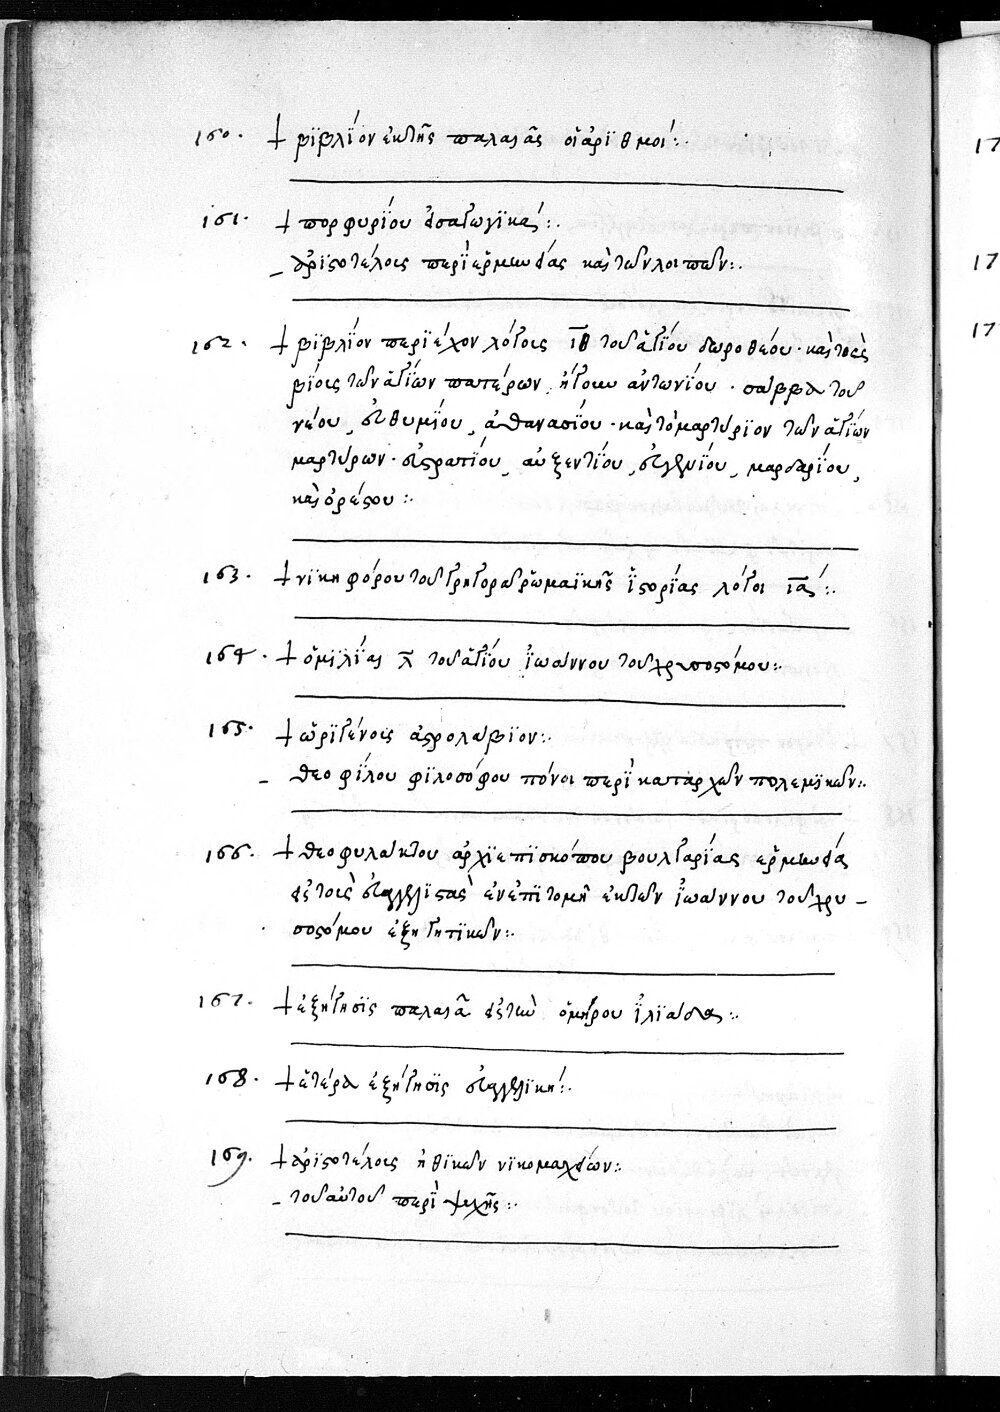 160. + βϊβλΐον ἐκτῆς παλαιᾶς οἱ ἀρϊθμοί :.
161. + πορφυρΐου εἰσαγωγϊκαί :.
- ἀρϊστοτέλους περὶ ἑρμηνείας καὶ τῶν λοιπῶν :.
162. + βϊβλΐον περϊέχον λόγους ιθ τοῦ ἁγΐου δωροθέου · καὶ τοὺς
βΐους τῶν ἁγΐων πατέρων, ἤγουν ἀντωνΐου · σάββα τοῦ
νέου, εὐθυμΐου, ἀθανασΐου · καὶ τὸ μαρτύρϊον τῶν ἁγΐων
μαρτύρων · εὐστρατΐου, αὐξεντΐου, εὐγενΐου, μαρδαρΐου,
καὶ ὀρέστου :.
163. + νϊκηφόρου τοῦ γρηγορᾶ ῥωμαϊκῆς ἱστορΐας λόγοι ια :.
164. + ὁμϊλΐαι λ τοῦ ἁγΐου ἰωάννου τοῦ χρυσοστόμου :.
165. + ὠρϊγένους ἀστρολάβϊον :.
- θεοφΐλου φϊλοσόφου πόνοι περὶ καταρχῶν πολεμϊκῶν :.
166. + θεοφυλάκτου ἀρχϊεπϊσκόπου βουλγαρΐας ἑρμηνεία
εἰς τοὺς εὐαγγελϊστὰς ἐν ἐπϊτομῇ ἐκ τῶν ἰωάννου τοῦ χρυ-
σοστόμου ἐξηγητϊκῶν :.
167. + ἐξήγησϊς παλαιὰ εἰς τὴν ὁμήρου ἰλϊάδα :.
168. + ἑτέρα ἐξήγησϊς εὐαγγελϊκή :.
169. + ἀρϊστοτέλους ἠθϊκῶν νϊκομαχείων :.
- τοῦ αὐτοῦ περὶ ψυχῆς :.
17
17
17